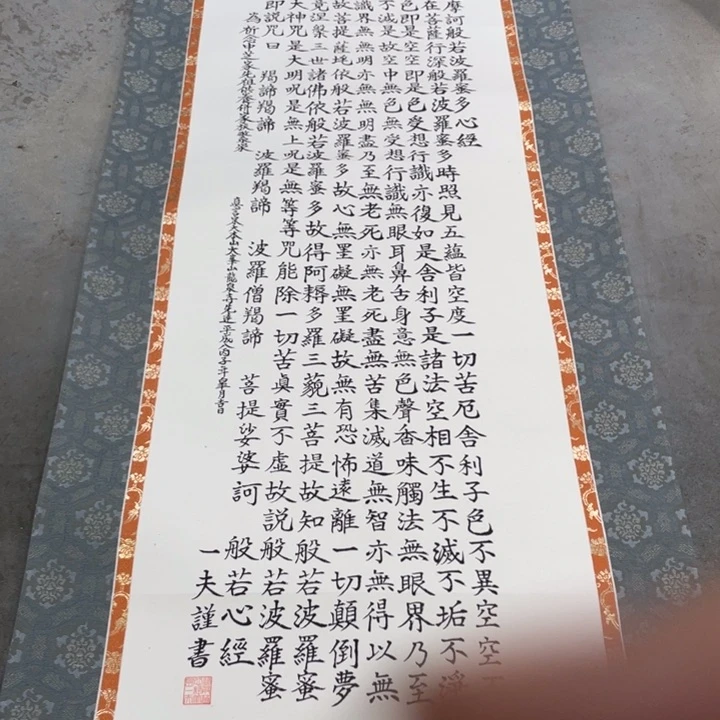 摩訶般若波羅蜜多心經
在菩薩行深般若波羅蜜多時照見五蘊皆空度一切苦厄舍利子色不異空空
色即是空空即是色受想行識亦復如是舍利子是諸法空相不生不滅不垢不淨
不減是故空中無色無受想行識無眼耳鼻舌身意無色聲香味觸法無眼界乃至
識界無無明亦無無明盡乃至無老死亦無老死盡無苦集滅道無智亦無得以無
故菩提薩埵依般若波羅蜜多故心無罣礙無罣礙故無有恐怖遠離一切顛倒夢
竟涅槃三世諸佛依般若波羅蜜多故得阿耨多羅三藐三菩提故知般若波羅蜜
大神咒是大明咒是無上咒是無等等咒能除一切苦眞實不虛故説般若波羅蜜
即説咒曰　羯諦羯諦　波羅羯諦　波羅僧羯諦　菩提娑婆訶　般若心經
大本山大峯山龍泉寺先達平成八丙子年皐月吉日
一夫謹書